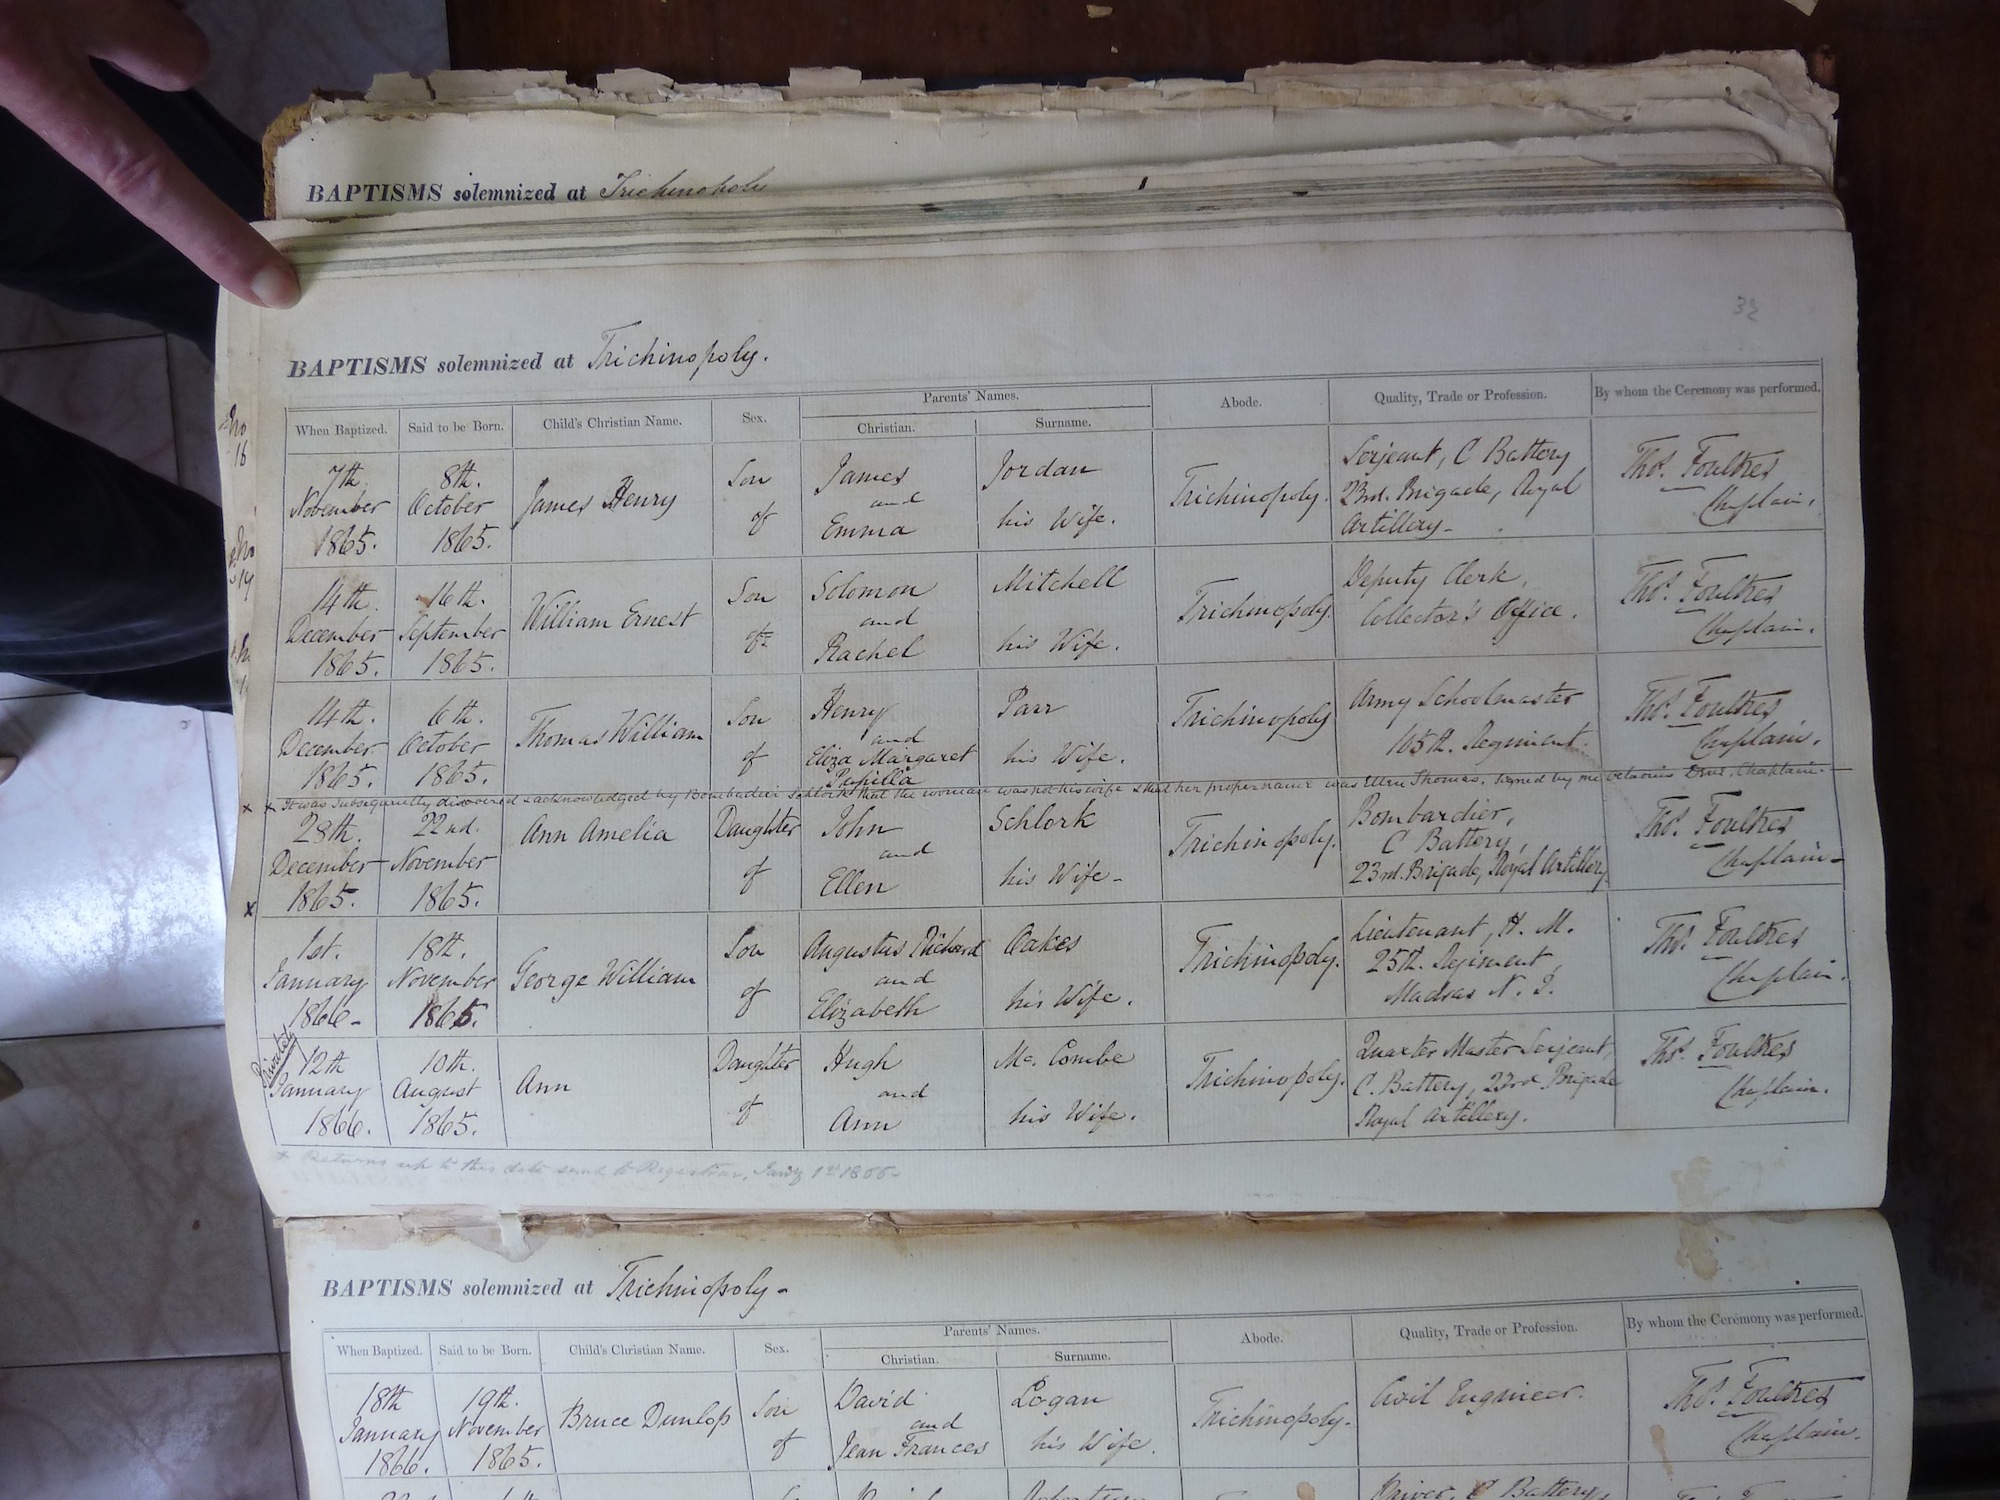 BAPTISMS solemnized at Trichinopoly
32
BAPTISMS solemnized at Trichinopoly.
When Baptized. Said to be Born. Child's Christian Name. Sex. Parents' Names. Christian. Surname. Abode. Quality, Trade or Profession. By whom the Ceremony was performed.
7th. 8th. Son James Jordan Serjeant, C Battery Thos. Foulkes
November October James Henry and Trichinopoly. 23rd. Brigade, Royal Chaplain.
1865. 1865. of Emma his Wife. Artillery-
14th. 16th. Son Solomon Mitchell Deputy Clerk, Thos. Foulkes
December September William Ernest and Trichinopoly. Collector's Office. Chaplain.
1865. 1865. of Rachel his Wife.
14th. 6th. Son Henry Parr Army Schoolmaster Thos. Foulkes
December October Thomas William and Trichinopoly 105th. Regiment. Chaplain.
1865. 1865. of Eliza Margaret his Wife.
Pupilla
x x It was subsequently discovered & acknowledged by Bombadier Schlork that the woman was not his wife & that her proper name was Ellen Thomas. Signed by me Chaplain.
28th. 22nd. Ann Amelia Daughter John Schlork Bombardier, Thos. Foulkes
December November and Trichinopoly. C Battery, Chaplain-
1865. 1865. of Ellen his Wife- 23rd. Brigade, Royal Artillery.
x
1st. 18th. Son Augustus Richard Oakes Lieutenant, H. M. Thos. Foulkes
January November George William and Trichinopoly. 25th. Regiment Chaplain.
1866- 1865. of Elizabeth his Wife. Madras N. I.
Privately
12th 10th. Daughter Hugh Mc. Combe Quarter Master Serjeant, Thos. Foulkes
January August Ann and Trichinopoly. C. Battery, 23rd. Brigade Chaplain.
1866. 1865. of Ann his Wife. Royal Artillery.
x Returns up to this date sent to Registrar, Jany 1st 1866-
BAPTISMS solemnized at Trichinopoly-
When Baptized. Said to be Born. Child's Christian Name. Sex. Parents' Names. Christian. Surname. Abode. Quality, Trade or Profession. By whom the Ceremony was performed.
18th 19th. Son David Logan Civil Engineer. Thos. Foulkes
January November Bruce Dunlop and Trichinopoly. Chaplain.
1866. 1865. of Jean Frances his Wife.
Driver, C Battery,